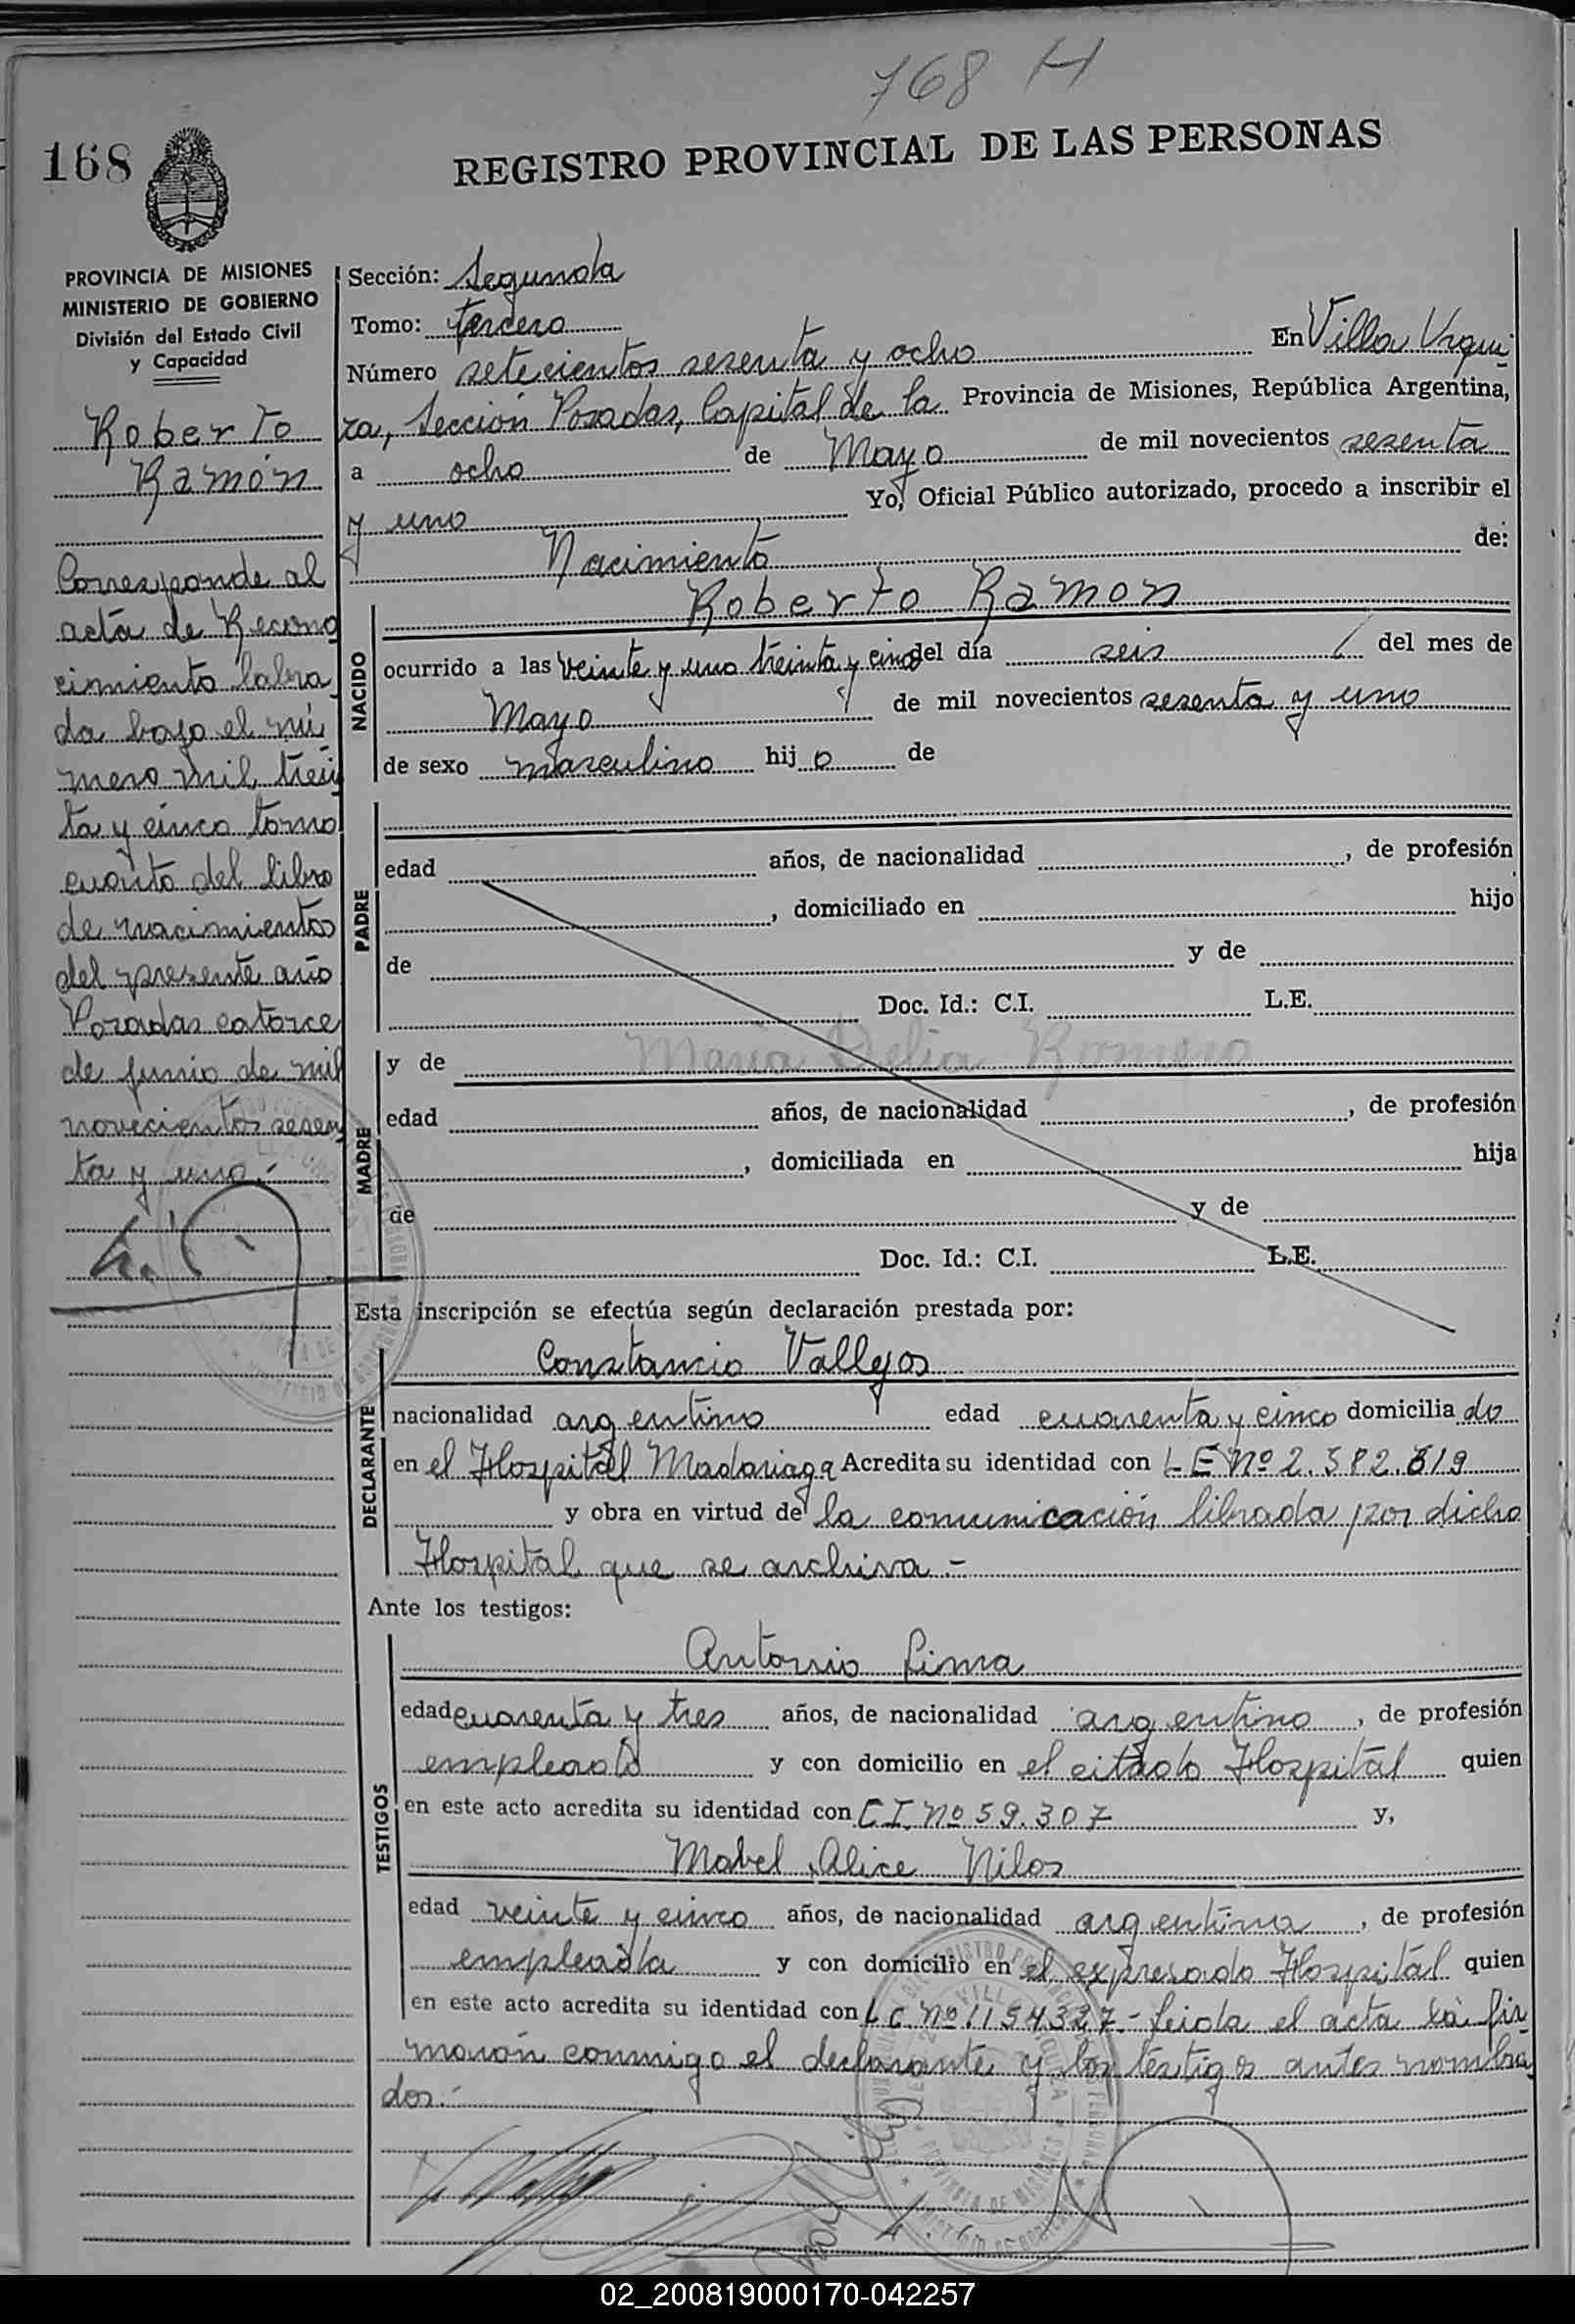 768 H
168
REGISTRO PROVINCIAL DE LAS PERSONAS
PROVINCIA DE MISIONES
MINISTERIO DE GOBIERNO
División del Estado Civil
y Capacidad
Roberto
Ramón
Corresponde al
acta de Recono
cimiento labra
da bajo el nú
mero mil trein
ta y cinco tomo
cuarto del libro
de nacimientos
del presente año
Posadas catorce
de junio de mil
novecientos sesen
ta y uno.-
Sección: Segunda
Tomo: tercero
Número setecientos sesenta y ocho En Villa Urqui
za, Sección Posadas, Capital de la Provincia de Misiones, República Argentina,
a ocho de Mayo de mil novecientos sesenta
y uno Yo, Oficial Público autorizado, procedo a inscribir el
Nacimiento de:
Roberto Ramon
NACIDO
ocurrido a las veinte y uno treinta y cinco del día seis del mes de
Mayo de mil novecientos sesenta y uno
de sexo masculino hijo de
PADRE
edad años, de nacionalidad , de profesión
, domiciliado en hijo
de y de
Doc. Id.: C.I. L.E.
MADRE
y de Maria Delia Romero
edad años, de nacionalidad , de profesión
, domiciliada en hija
de y de
Doc. Id.: C.I. L.E.
Esta inscripción se efectúa según declaración prestada por:
DECLARANTE
Constancio Vallejos
nacionalidad argentino edad cuarenta y cinco domiciliado
en el Hospital Madariaga Acredita su identidad con L E Nº 2.582.819
y obra en virtud de la comunicación librada por dicho
Hospital que se archiva.-
Ante los testigos:
TESTIGOS
Antonio Lima
edad cuarenta y tres años, de nacionalidad argentino, de profesión
empleado y con domicilio en el citado Hospital quien
en este acto acredita su identidad con C.I. Nº 59.307 y,
Mabel Alice Nilos
edad veinte y cinco años, de nacionalidad argentina, de profesión
empleada y con domicilio en el expresado Hospital quien
en este acto acredita su identidad con L C Nº 1154327.- Leida el acta la fir
maron conmigo el declarante y los testigos antes nombra
dos.-
PROVINCIA DE MISIONES
02_200819000170-042257